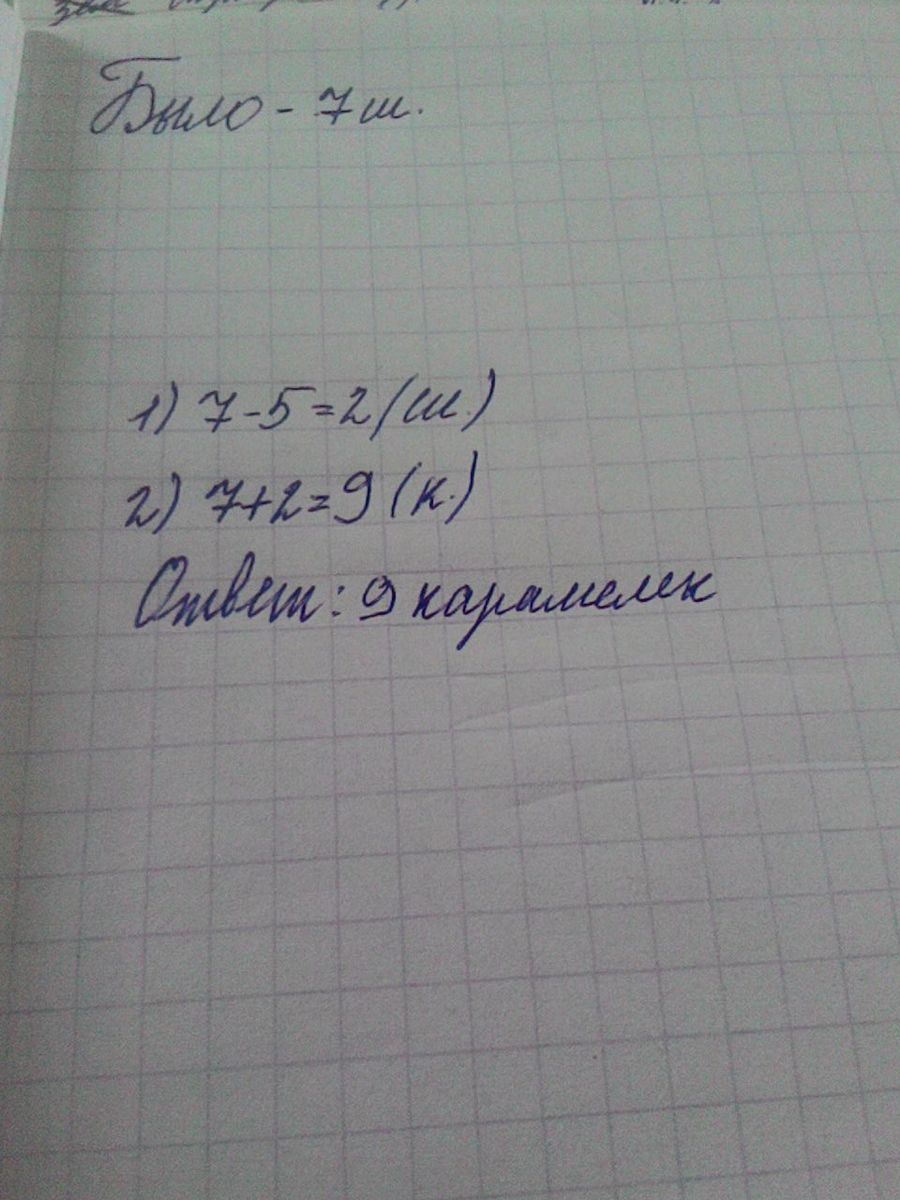 Было - 7 ш.
1) 7-5=2 (ш.)
2) 7+2=9 (к.)
Ответ: 9 карамелек